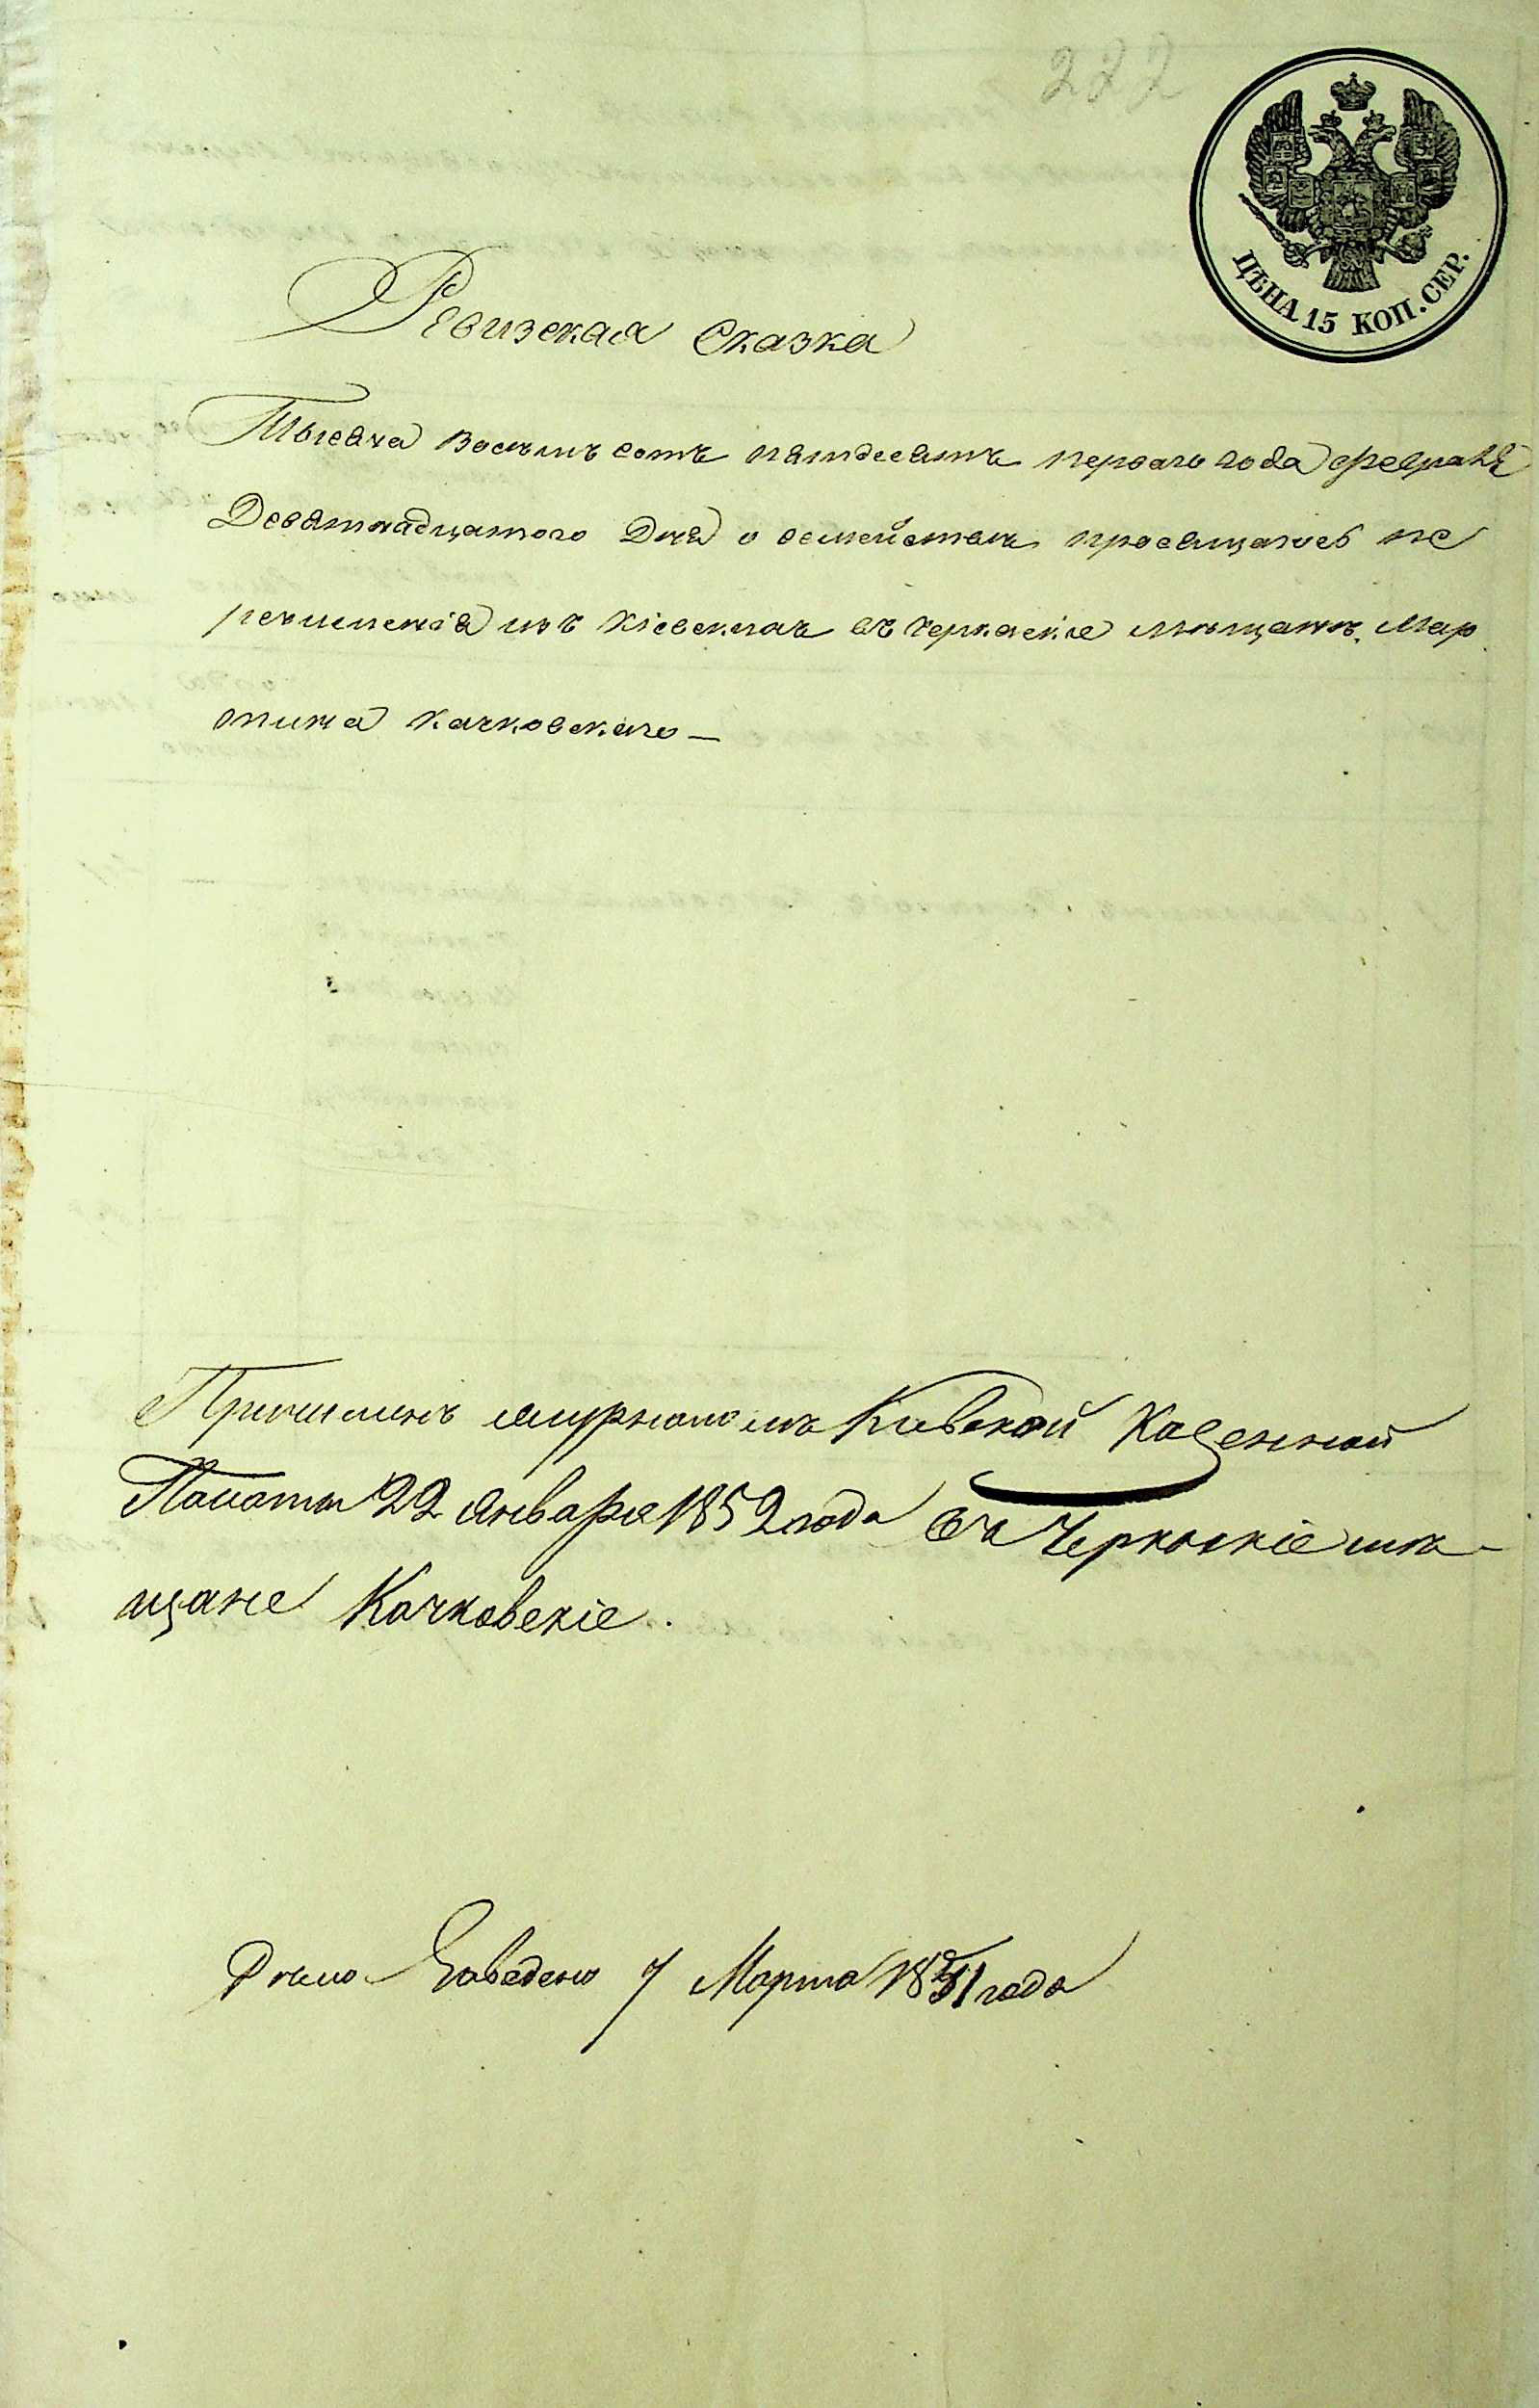 222
ЦѢНА 15 КОП. СЕР.
Ревизская Сказка
Тысяча восемь сотъ пятдесятъ перваго года февраля
Девятнадцатого Дня о семействѣ просящагося пе
речисленія изъ Кіевскихъ въ Черкаскіе мѣщанѣ Мар
тина Качковскаго —
Причисленъ журналомъ Кіевской Казенной
Палаты 22 Января 1852 года въ Черкаскіе мѣ-
щане Качковскіе.
Заведено 7 Марта 1851 года